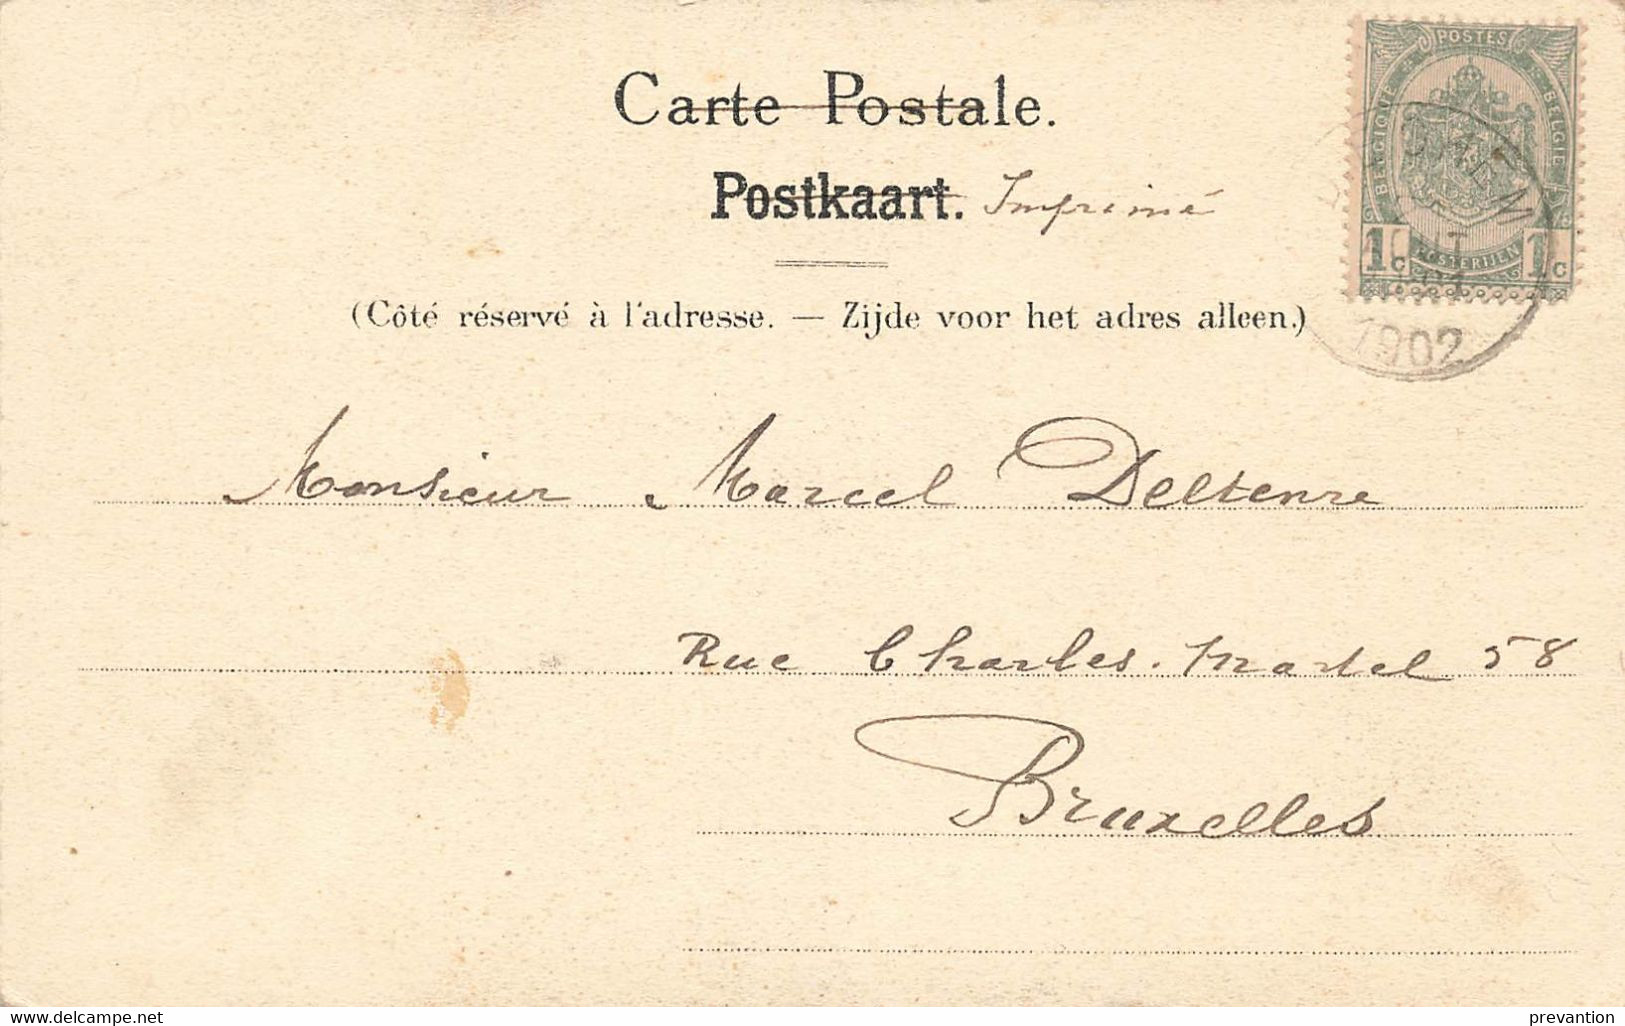 Carte Postale.
Postkaart. Imprimé
(Côté réservé à l'adresse. — Zijde voor het adres alleen.)
POSTES
BELGIQUE
BELGIE
1c POSTERIJEN 1c
1902
Monsieur Marcel Deltenre
Rue Charles-Martel 58
Bruxelles
www.delcampe.net
prevantion